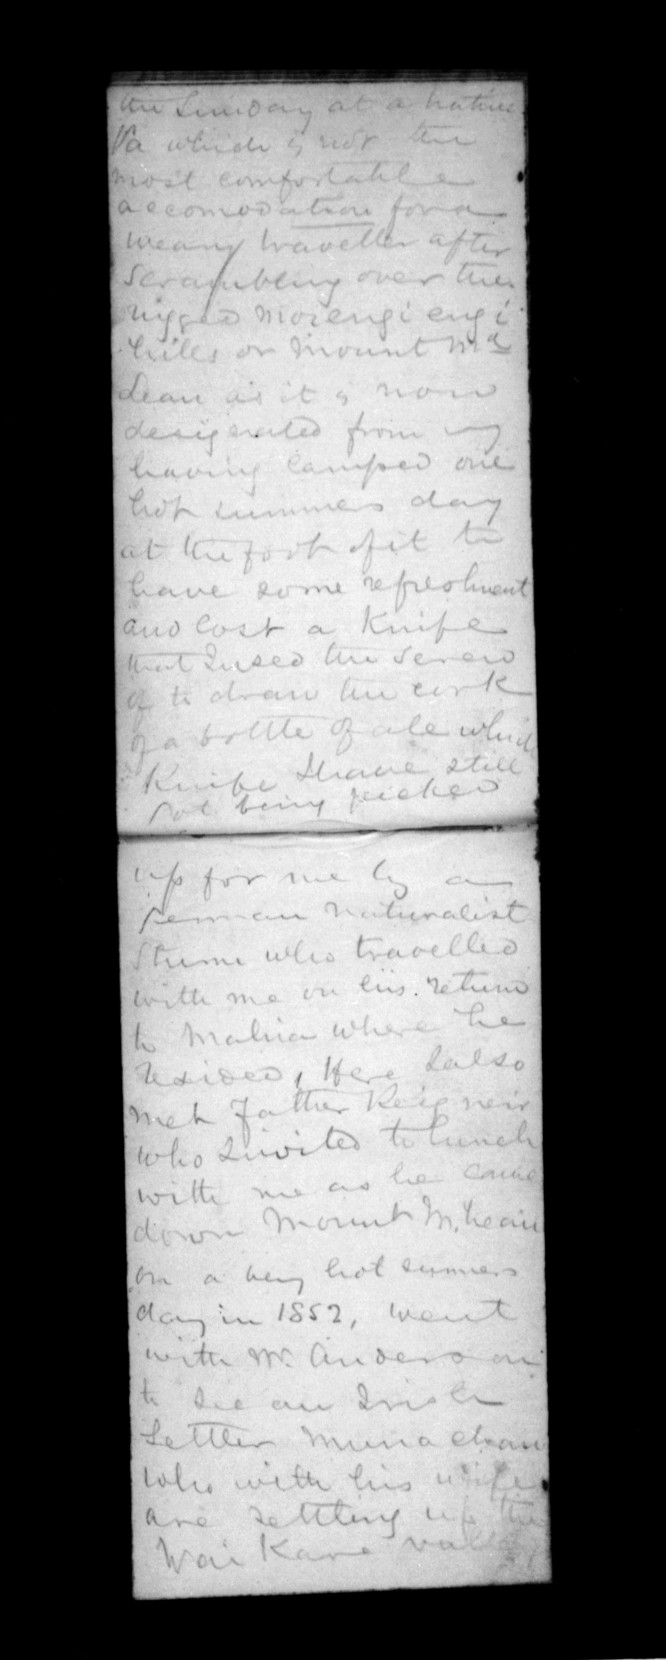 the Sunday at a native
Pa which is not the
most comfortable
accomodation for a
weary traveller after
scrambling over the
rugged Moiengiengi
hills or Mount Mc
Lean as it is now
designated from my
having camped one
hot summers day
at the foot of it to
have some refreshment
and lost a Knife
that I used the screw
of to draw the cork
of a bottle of ale which
Knife I have still
not being picked
up for me by a
German naturalist
Sturm who travelled
with me on his return
to Mahia where he
resided, Here I also
met Father Reignier
who I invited to lunch
with me as he came
down Mount McLean
on a very hot summers
day in 1852, went
with Mr. Anderson
to see an Irish
Settler
who with his wife
are settling up the
Wai Kare valley